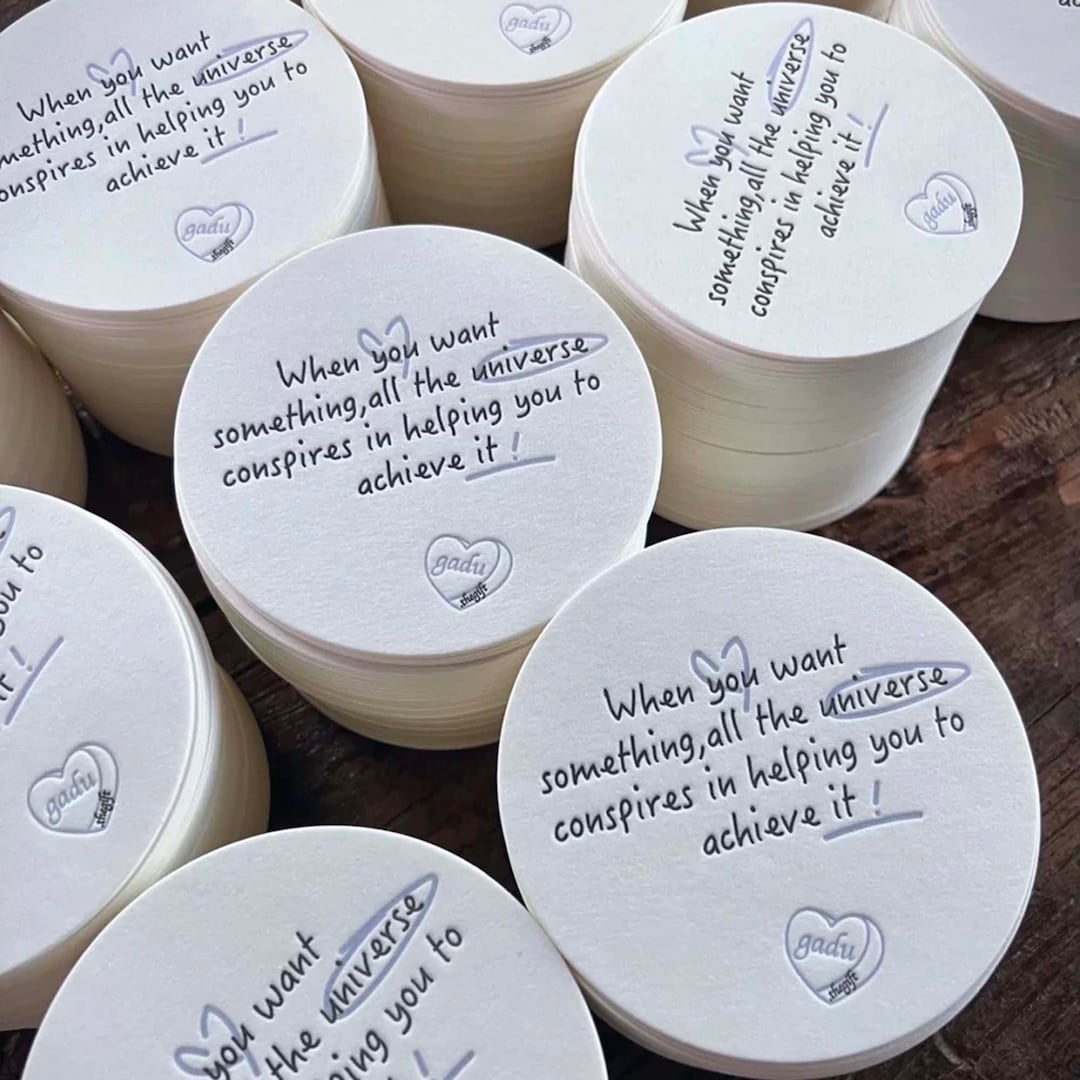 When you want
something,all the universe
conspires in helping you to
achieve it !
gadu
shugift
When you want
something,all the universe
conspires in helping you to
achieve it !
gadu
shugift
When you want
something,all the universe
conspires in helping you to
achieve it !
gadu
shugift
When you want
all the universe
conspires in helping you to
achieve it !
gadu
shugift
gadu
shugift
you to
it !
gadu
shugift
you want
the universe
you to
!